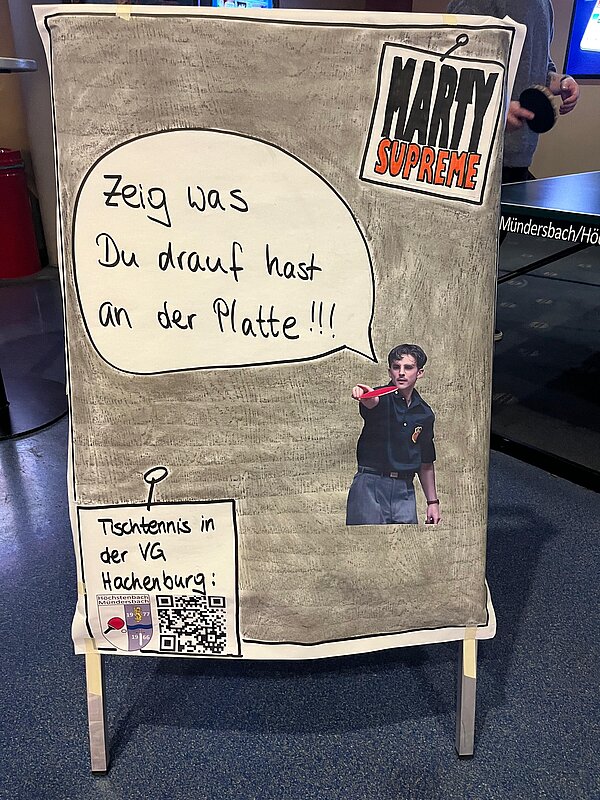 MARTY
SUPREME
Zeig was
Du drauf hast
an der Platte!!!
Mündersbach/Hö
Tischtennis in
der VG
Hachenburg:
Höchstenbach
Mündersbach
1977
1966